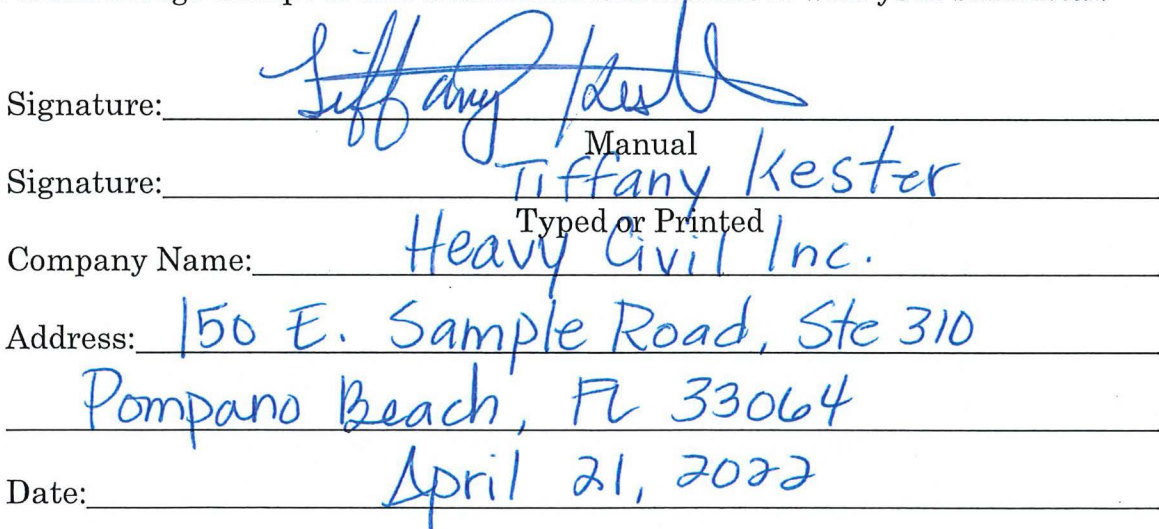 Signature: Tiffany Kester
Manual
Signature: Tiffany Kester
Typed or Printed
Company Name: Heavy Civil Inc.
Address: 150 E. Sample Road, Ste 310
Pompano Beach, FL 33064
Date: April 21, 2022